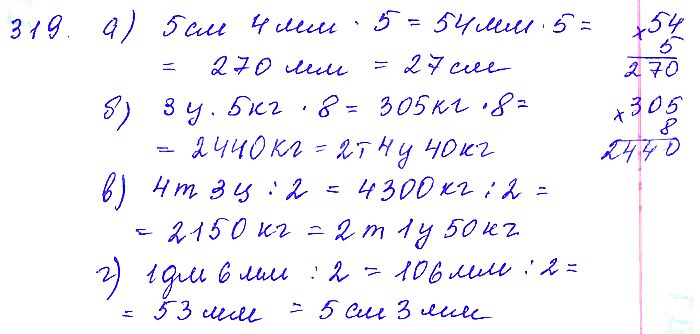 319. а) 5см 4мм · 5 = 54мм · 5 =
= 270 мм = 27см
× 54
5
270
б) 3ц. 5кг · 8 = 305кг · 8 =
= 2440кг = 2т 4ц 40кг
× 305
8
2440
в) 4т 3ц : 2 = 4300кг : 2 =
= 2150 кг = 2т 1ц 50кг
г) 1дм 6мм : 2 = 106мм : 2 =
= 53 мм = 5 см 3 мм